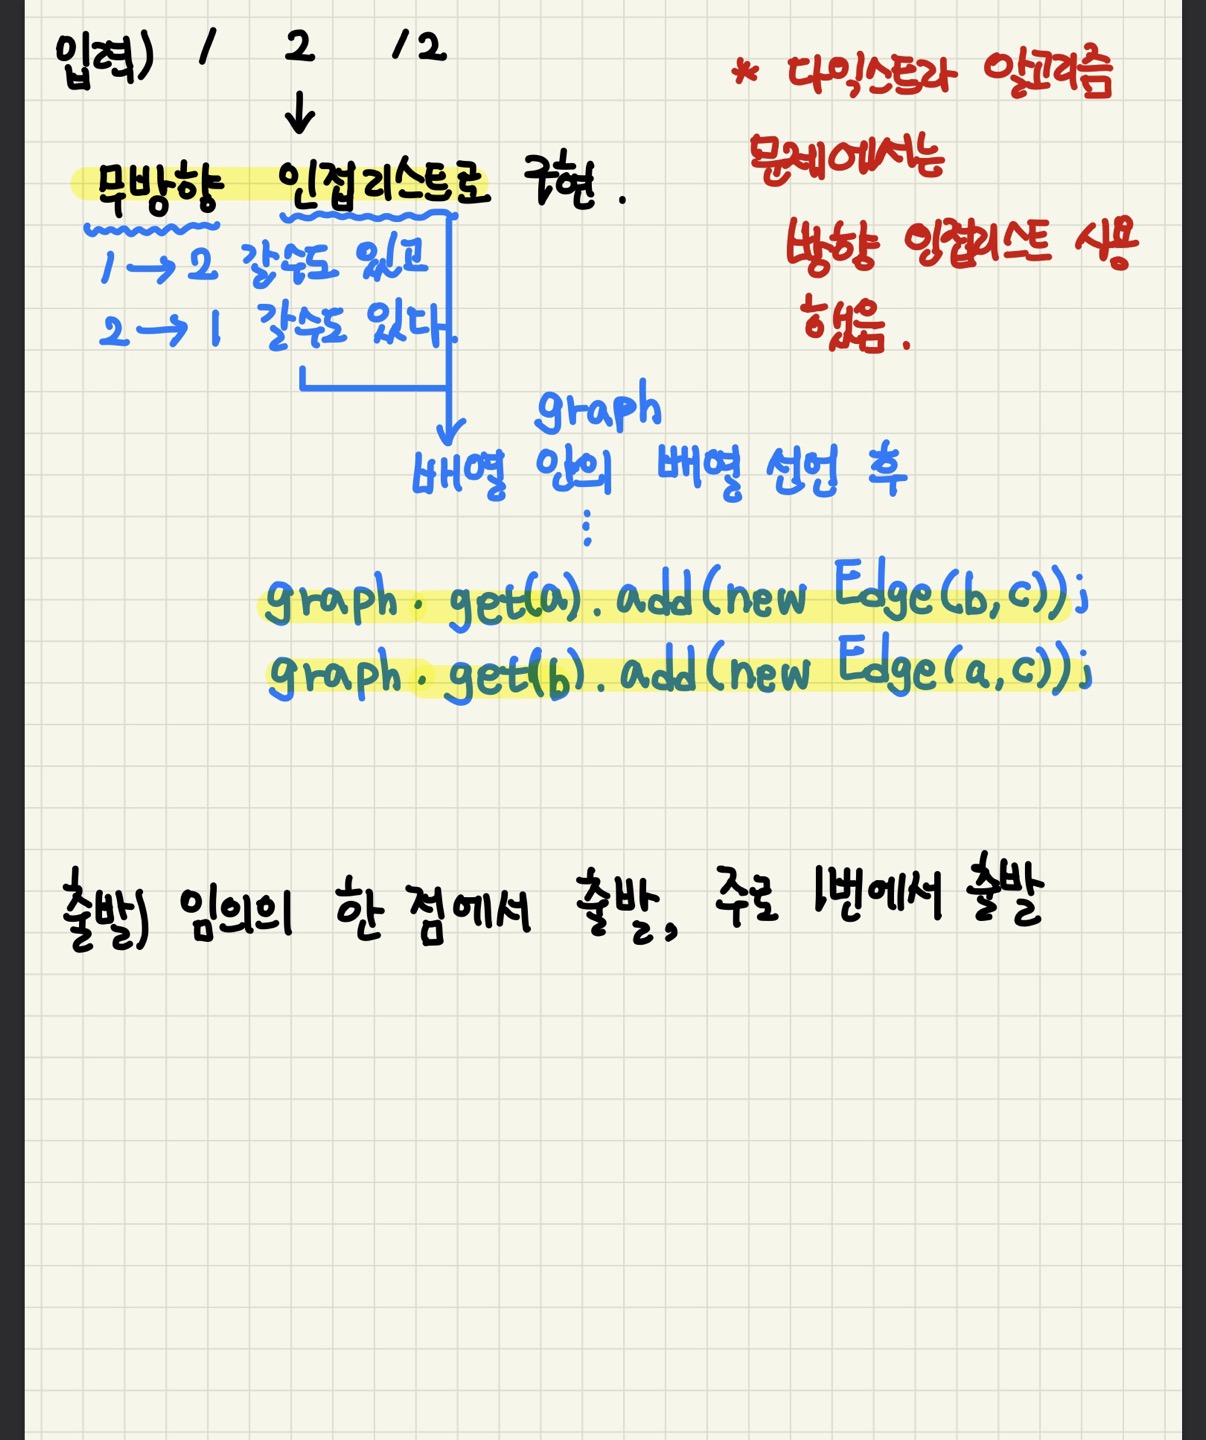 입력) 1 2 12
↓
무방향 인접리스트로 구현.
1→2 갈수도 있고
2→1 갈수도 있다.
* 다익스트라 알고리즘
문제에서는
방향 인접리스트 사용
했음.
graph
배열 안의 배열 선언 후
⋮
graph. get(a). add(new Edge(b,c));
graph. get(b). add(new Edge(a,c));
출발) 임의의 한 점에서 출발, 주로 1번에서 출발